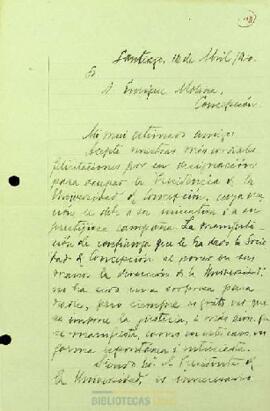 Santiago, 10 de Abril /20.
S.
D. Enrique Molina,
Concepción.
Mi mui estimado amigo:
Acepte nuestras más cordiales
felicitaciones por su designación
para ocupar la Presidencia de la
Universidad de Concepción, cuya
se debe a su iniciativa i a su
prestijiosa campaña. La manifesta-
ción de confianza que le ha dado la Socie-
dad de Concepción al poner en sus
manos la dirección de la Universidad
no ha sido una sorpresa para
nadie, pero siempre es grato ver que
se impone la justicia, i más aun que
se manifiesta, como en este caso, en
forma espontánea i
Siendo Ud. el Presidente de
la Universidad, es innecesario
BIBLIOTECAS